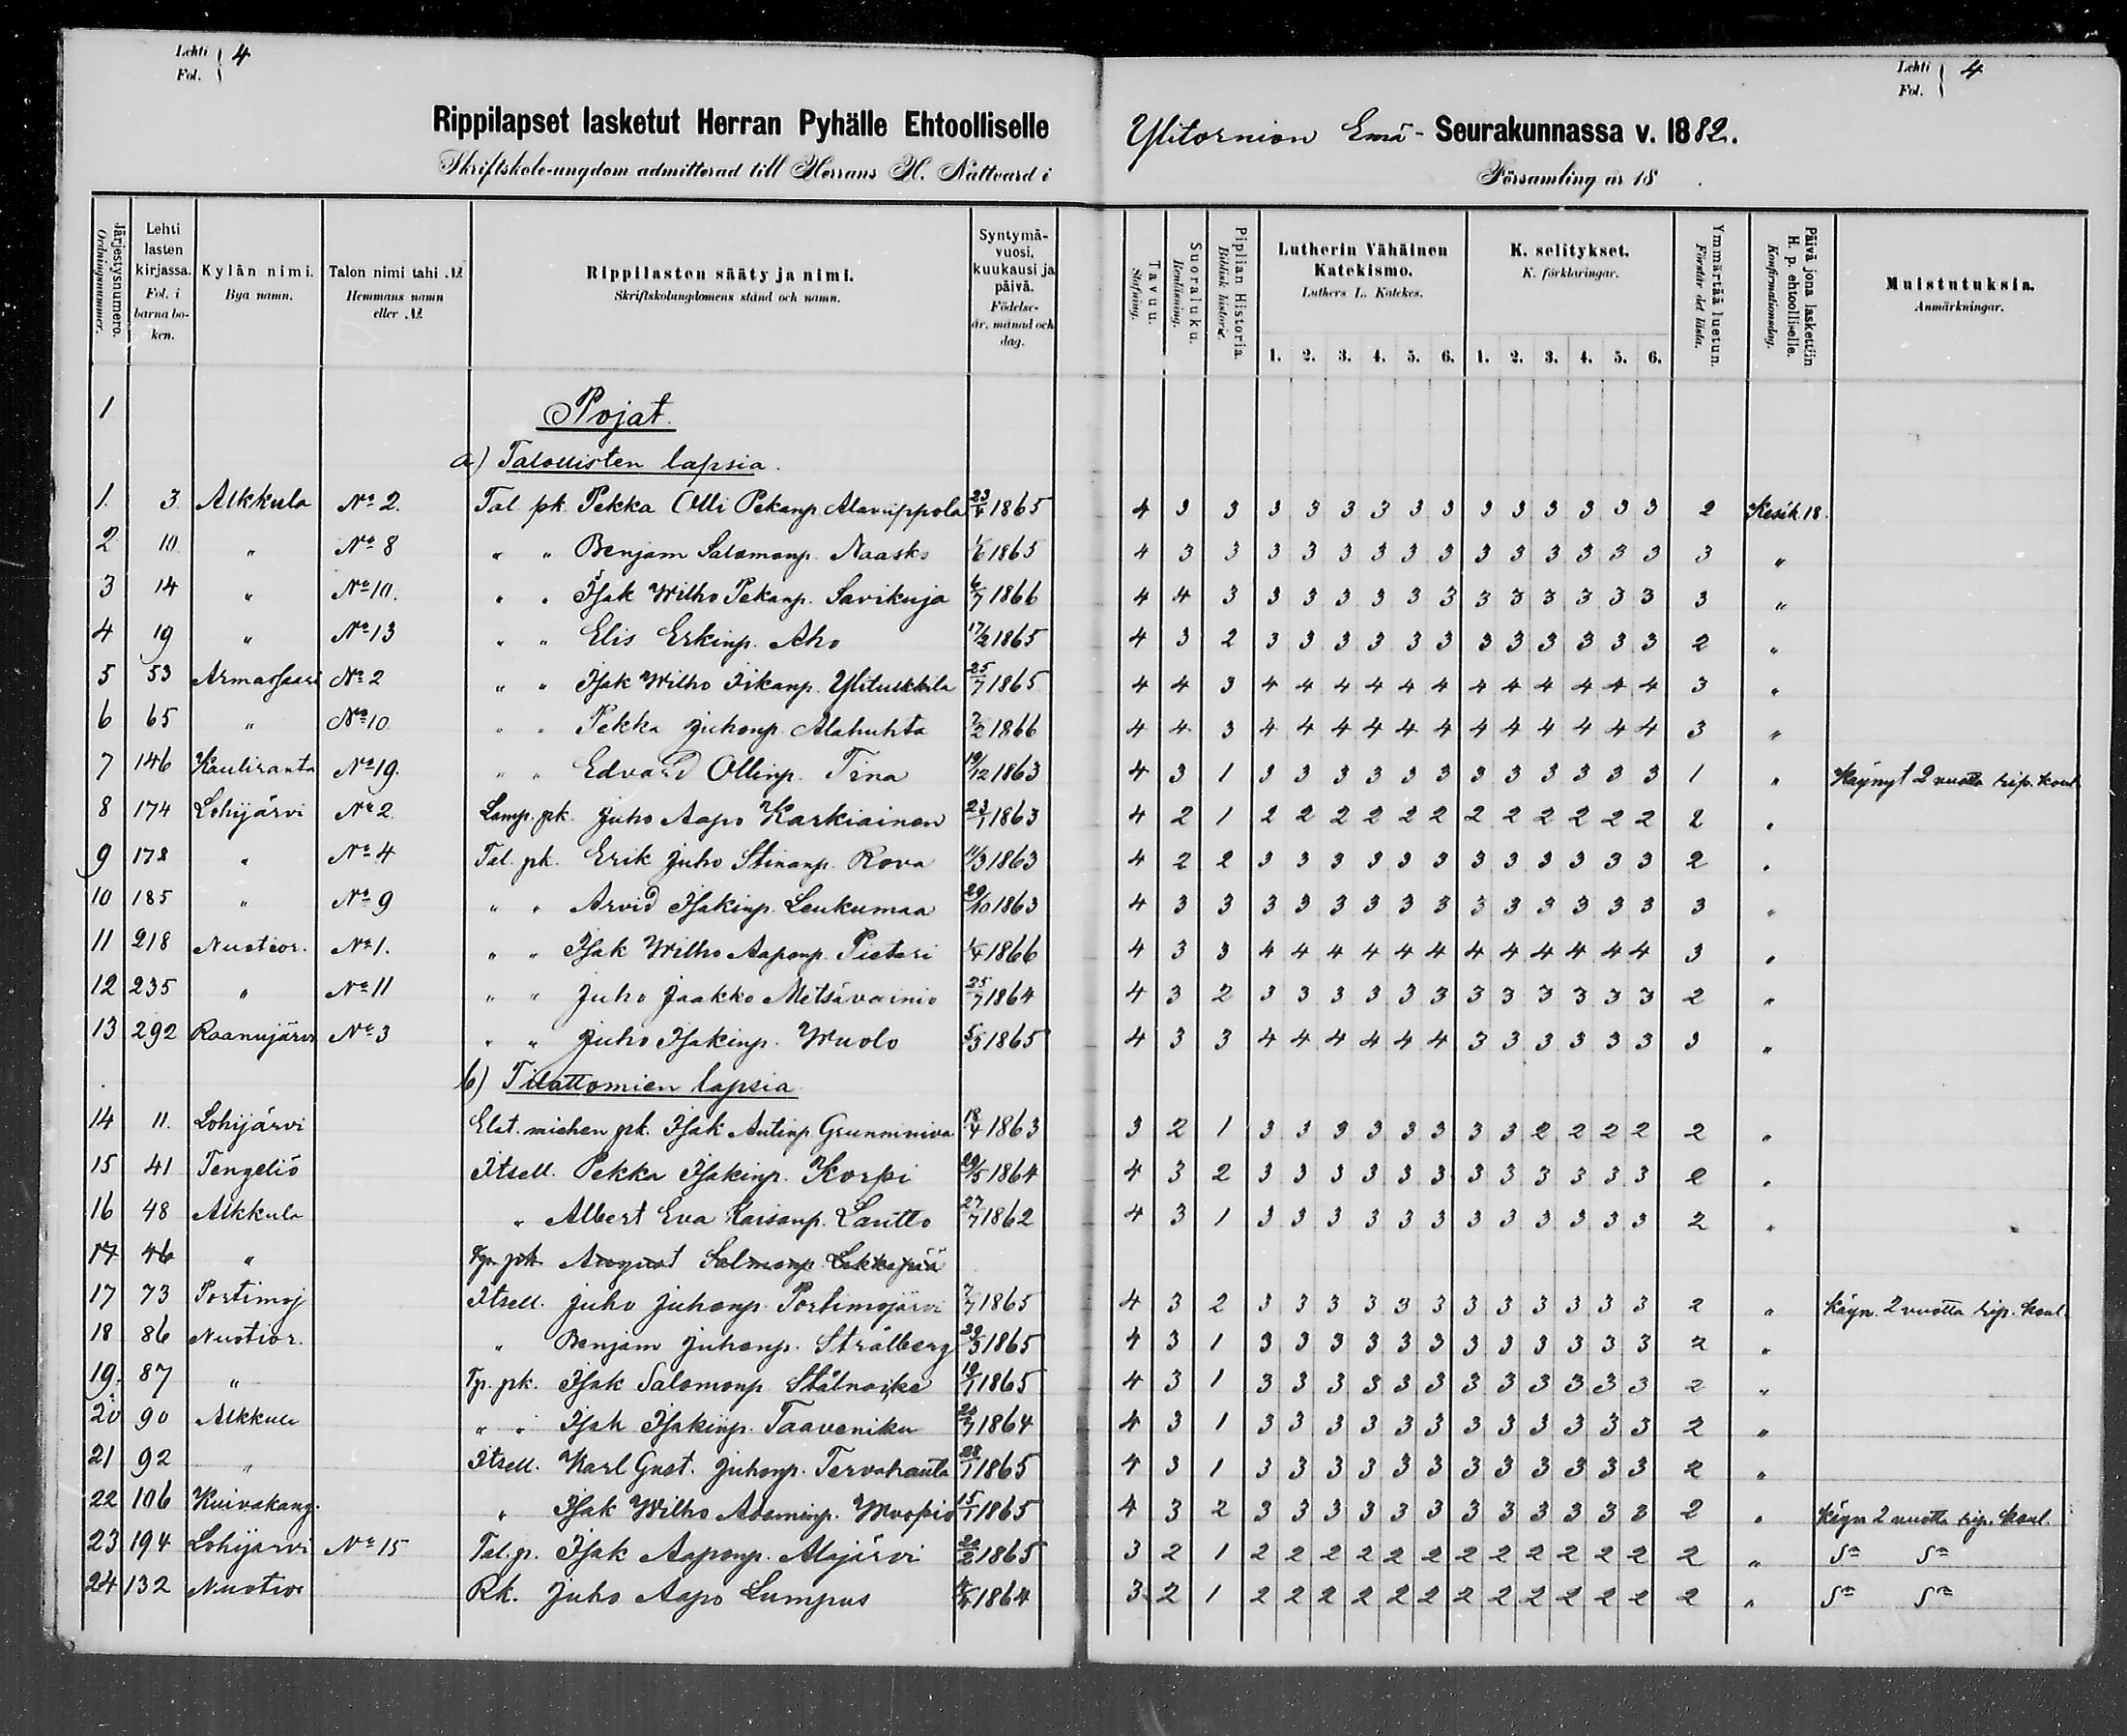 Lehti Fol. 4
Lehti Fol. 4
Rippilapset lasketut Herran Pyhälle Ehtoolliselle Ylitornion Emä- Seurakunnassa v. 1882.
Skriftskole-ungdom admitterad till Herrans H. Nattvard i Församling år 18 .
Järjestysnumero. Ordningsnummer.
Lehti lasten kirjassa. Fol. i barna boken.
Kylän nimi. Bya namn.
Talon nimi tahi №. Hemmans namn eller №.
Rippilasten sääty ja nimi. Skriftskolungdomens stånd och namn.
Syntymävuosi, kuukausi ja päivä. Födelse-år, månad och dag.
Tavuu. Stafning.
Suoraluku. Renläsning.
Piplian Historia. Biblisk historie.
Lutherin Vähäinen Katekismo. Luthers L. Katekes. 1. 2. 3. 4. 5. 6.
K. selitykset. K. förklaringar. 1. 2. 3. 4. 5. 6.
Ymmärtää luetun. Förstår det lästa.
Päivä jona laskettiin H. p. ehtoolliselle. Konfirmationsdag.
Muistutuksia. Anmärkningar.
1 Pojat.
a) Talollisten lapsia.
1. 3 Alkkula No 2. Tal. pk. Pekka Olli Pekanp. 23/4 1865 4 3 3 3 3 3 3 3 3 3 3 3 3 3 3 2 Kesäk. 18.
2 10 " No 8 " " Benjam Salomonp. Naasko 1/6 1865 4 3 3 3 3 3 3 3 3 3 3 3 3 3 3 3 "
3 14 " No 10. " " Isak Wilho Pekanp. Savikuja 6/7 1866 4 4 3 3 3 3 3 3 3 3 3 3 3 3 3 3 "
4 19 " No 13 " " Elis Erkinp. Aho 17/2 1865 4 3 2 3 3 3 3 3 3 3 3 3 3 3 3 2 "
5 53 Armassaari No 2 " " Isak Wilho Iikanp. 25/7 1865 4 4 3 4 4 4 4 4 4 4 4 4 4 4 4 3 "
6 65 " No 10. " " Pekka Juhonp. Alahuhta 7/2 1866 4 4 3 4 4 4 4 4 4 4 4 4 4 4 4 3 "
7 146 Kauliranta No 19. " " Edvard Ollinp. Tina 19/12 1863 4 3 1 3 3 3 3 3 3 3 3 3 3 3 3 1 " Käynyt 2 vuotta rip. koul.
8 174 Lohijärvi No 2. Lamp. pk. Juho Aapo Karkiainen 23/1 1863 4 2 1 2 2 2 2 2 2 2 2 2 2 2 2 2 "
9 178 " No 4 Tal. pk. Erik Juho Stinanp. Rova 11/3 1863 4 2 2 3 3 3 3 3 3 3 3 3 3 3 3 2 "
10 185 " No 9 " " Arvid Isakinp. Leukumaa 29/10 1863 4 3 3 3 3 3 3 3 3 3 3 3 3 3 3 3 "
11 218 Nuotior. No 1. " " Isak Wilho Aaponp. Pietari 1/4 1866 4 3 3 4 4 4 4 4 4 4 4 4 4 4 4 3 "
12 235 " No 11 " " Juho Jaakko Metsävainio 25/7 1864 4 3 2 3 3 3 3 3 3 3 3 3 3 3 3 2 "
13 292 Raanujärvi No 3 " " Juho Isakinp. Wuolo 5/3 1865 4 3 3 4 4 4 4 4 4 3 3 3 3 3 3 3 "
b) Tilattomien lapsia
14 11. Lohijärvi Elat. miehen pk. Isak Antinp. 18/4 1863 3 2 1 3 3 3 3 3 3 3 3 2 2 2 2 2 "
15 41 Tengeliö Itsell. Pekka Isakinp. Korpi 29/5 1864 4 3 2 3 3 3 3 3 3 3 3 3 3 3 3 2 "
16 48 Alkkula " Albert Eva Kaisanp. Lautto 27/7 1862 4 3 1 3 3 3 3 3 3 3 3 3 3 3 3 2 "
17 46 " pk. August Salmonp. Lakkapää
17 73 Portimoj Itsell. Juho Juhonp. Portimojärvi 7/7 1865 4 3 2 3 3 3 3 3 3 3 3 3 3 3 3 2 " Käyn. 2 vuotta rip. koul.
18 86 Nuotior. " Benjam Juhonp. Strålberg 30/3 1865 4 3 1 3 3 3 3 3 3 3 3 3 3 3 3 2 "
19. 87 " Tp. pk. Isak Salomonp. Stålnacke 19/1 1865 4 3 1 3 3 3 3 3 3 3 3 3 3 3 3 2 "
20 90 Alkkula " " Isak Isakinp. Taaveniku 1864 4 3 1 3 3 3 3 3 3 3 3 3 3 3 3 2 "
21 92 " Itsell. Karl Gust. Juhonp. Tervahauta 28/1 1865 4 3 1 3 3 3 3 3 3 3 3 3 3 3 3 2 "
22 106 Kuivakang. " Isak Wilho Adaminp. 15/1 1865 4 3 2 3 3 3 3 3 3 3 3 3 3 3 3 2 " Käyn 2 vuotta rip. koul.
23 194 Lohijärvi No 15 Tal. p. Isak Aaponp. Alajärvi 20/2 1865 3 2 1 2 2 2 2 2 2 2 2 2 2 2 2 2 " Sa Sa
24 132 Nuotior Rk. Juho Aapo Lumpus 4/4 1864 3 2 1 2 2 2 2 2 2 2 2 2 2 2 2 2 " Sa Sa